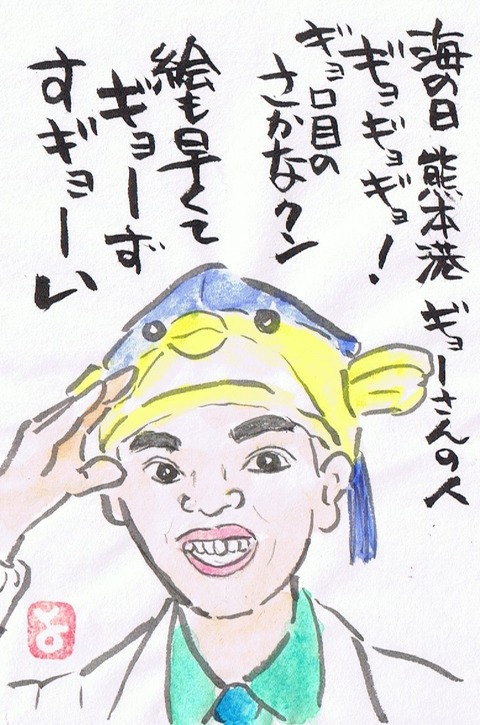 海の日 熊本港 ギョーさんの人
ギョギョギョ!
ギョロ目の
さかなクン
絵も早くて
ギョーず
すギョーい
とよ